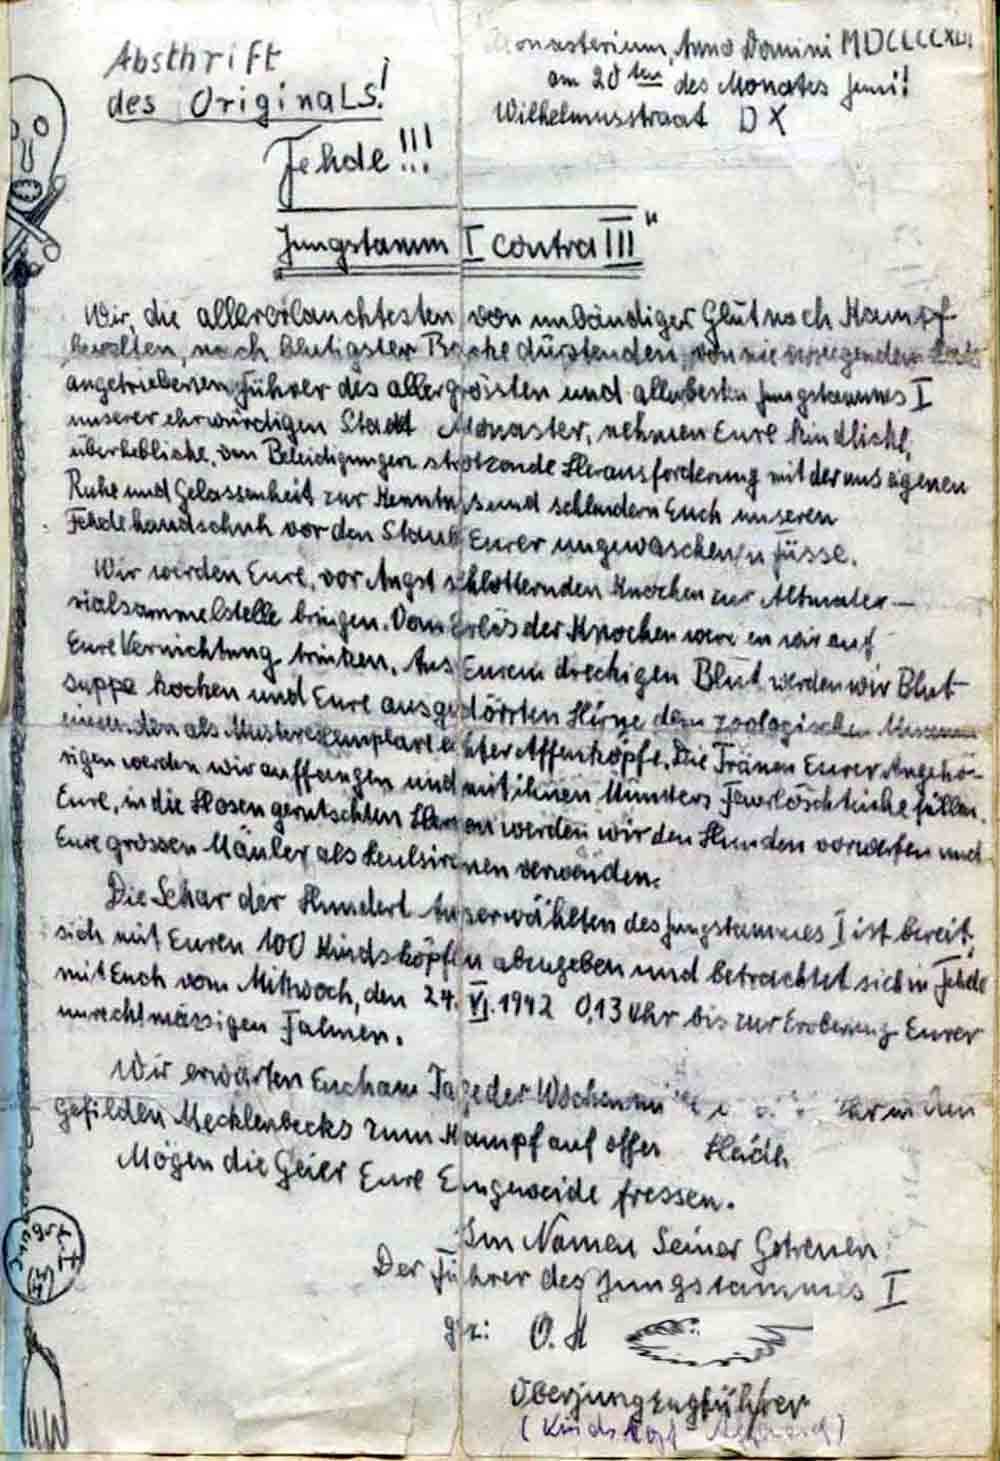 Absthrift
des Originals!
Monasterium, Anno Domini MDCCCCXLII
am 20ten des Monates Juni!
Wilhelmusstraat D X
Fehde!!!
Jungstamm I contra III"
Wir, die allererlauchtesten von unbändiger Glut nach Kampf
beseelten, nach blutigster Rache dürstenden, von nie
angetriebenen Führer des allergrössten und allerbesten Jungstammes I
unserer ehrwürdigen Stadt Monaster, nehmen Eure kindliche,
überhebliche, von Beleidigungen strotzende Herausforderung mit der uns eigenen
Ruhe und Gelassenheit zur Kenntnis und schleudern Euch unseren
Fehdehandschuh vor den Staub Eurer ungewaschenen Füsse.
Wir werden Eure, vor Angst schlotternden Knochen zur Altmater-
ialsammelstelle bringen. Vom Erlös der Knochen werden wir auf
Eure Vernichtung trinken. Aus Eurem dreckigen Blut werden wir Blut-
suppe kochen und Eure ausgedörrten Hirne dem zoologischen Museum
als Musterexemplare echter Affenköpfe. Die Tränen Eurer Angehö-
rigen werden wir auffangen und mit ihnen Münsters Feuerlöschteiche füllen.
Eure, in die Hosen gerutschten Herzen werden wir den Hunden vorwerfen und
Eure grossen Mäuler als Heulsirenen verwenden.
Die Schar der Hundert Auserwählten des Jungstammes I ist bereit,
sich mit Euren 100 Kindsköpfen abzugeben und betrachtet sich in Fehde
mit Euch vom Mittwoch, den 24. VI. 1942 0,13 Uhr bis zur Eroberung Eurer
unrechtmässigen Fahnen.
Wir erwarten Euch am Tage der Wochenmitte Uhr in den
Gefilden Mecklenbecks zum Kampf auf
Mögen die Geier Eure Eingeweide fressen.
Im Namen Seiner Getreuen
Der Führer des Jungstammes I
gez: O. H
Oberjungzugführer